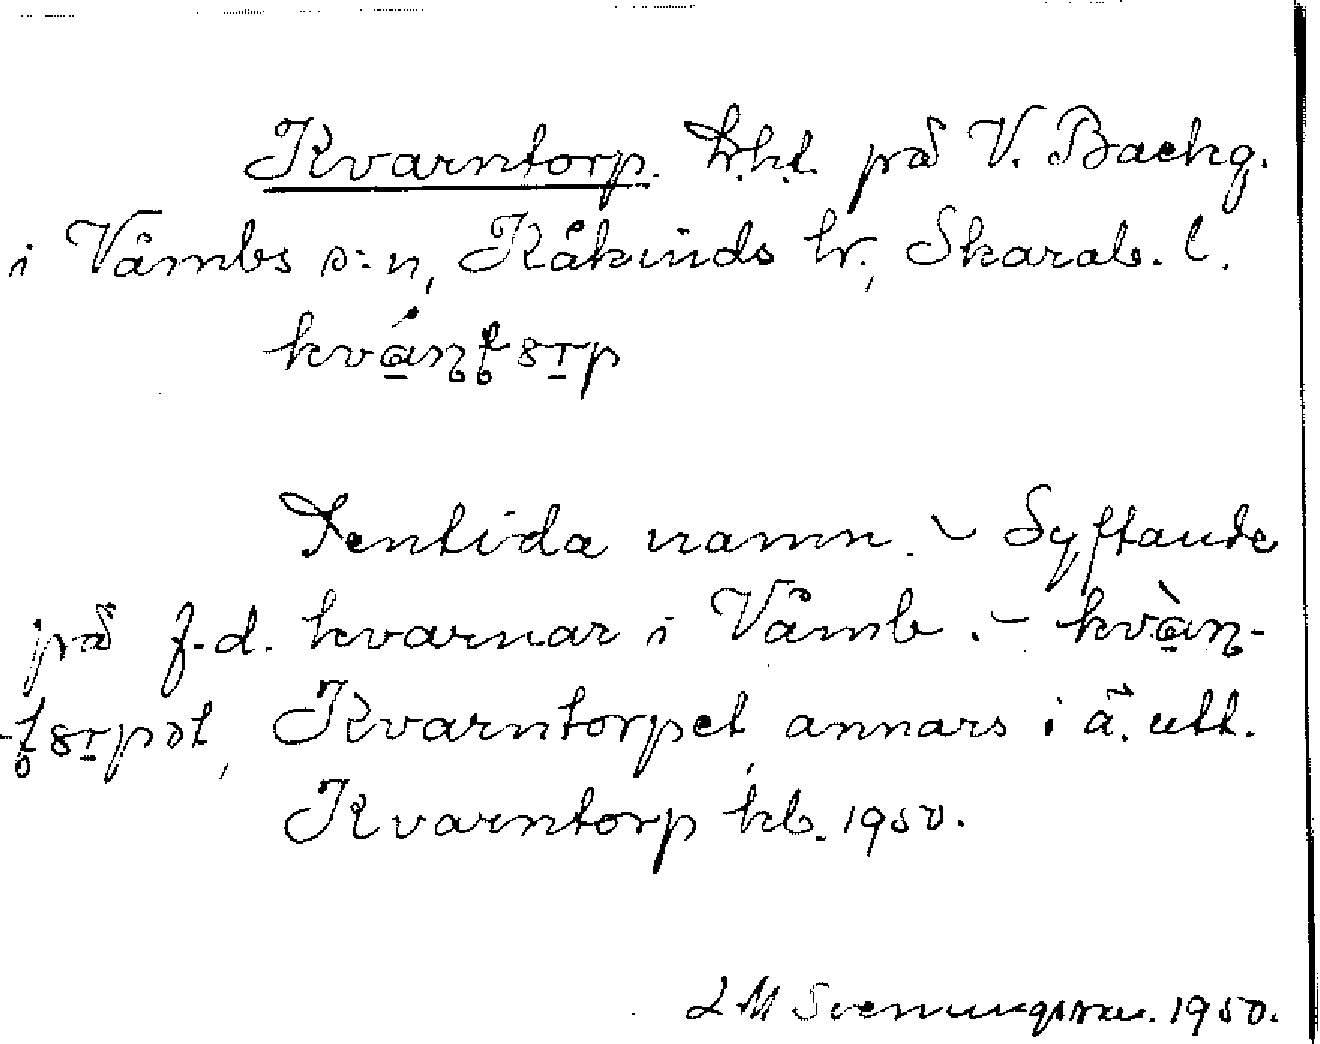 Kvarntorp. trkt. på V. Backg.
i Våmbs s:n, Kåkinds hr., Skarab. l.
Sentida namn. – Syftande
på f.d. kvarnar i Våmb. –
Kvarntorpet, annars i ä. utt.
Kvarntorp kb. 1950.
L M Svenungsson. 1950.